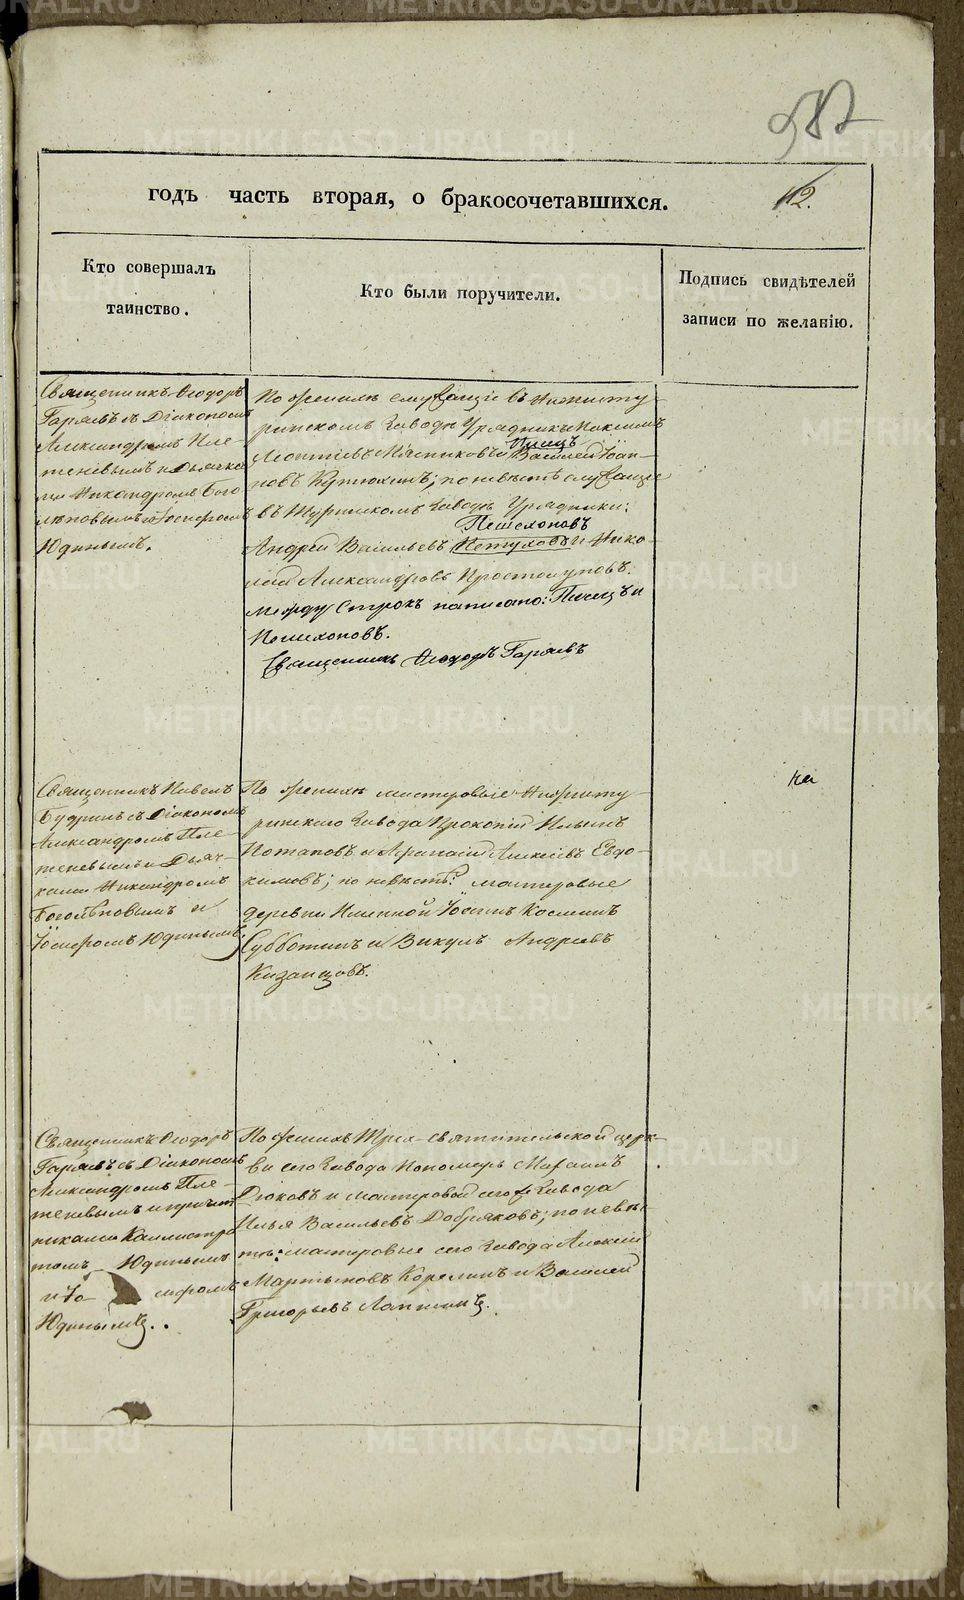 587
годъ часть вторая, о бракосочетавшихся.
112.
Кто совершалъ
таинство.
Кто были поручители.
Подпись свидѣтелей
записи по желанію.
Священникъ Ѳеодоръ
Гаряевъ съ Діакономъ
Александромъ Пле-
теневымъ и Дьячка-
ми Никандромъ Бого
лѣповымъ и Іосифомъ
Юдинымъ.
По женихѣ служащіе въ Нижнету-
ринскомъ Заводѣ Урядникъ Максимъ
Леонтіевъ Мясниковъ и
Писецъ
Василій Іоан-
новъ Кутюхинъ; по невѣстѣ служащіе
въ Туринскомъ Заводѣ Урядники:
Пешехоновъ
Андрей Васильевъ Петуховъ и Нико-
лай Александровъ Простолуповъ.
Между строкъ написано: Писецъ и
Пешехоновъ.
Священникъ Ѳеодоръ Гаряевъ
Священникъ Павелъ
Будринъ съ Діакономъ
Александромъ Пле-
теневымъ и Дьяч-
ками Никандромъ
Боголѣповымъ и
Іосифомъ Юдинымъ.
По женихѣ мастеровые Нижнету-
ринскаго Завода Прокопій Ильинъ
Потаповъ и Афанасій Алексѣевъ Евдо-
кимовъ; по невѣстѣ: мастеровые
деревни Именной Іосифъ Косминъ
Субботинъ и Викулъ Андреевъ
Казанцовъ.
Священникъ Ѳеодоръ
Гаряевъ съ Діакономъ
Александромъ Пле-
теневымъ и причет
никами Каллистра
томъ Юдинымъ
и Іо- сифомъ
Юдинымъ.
По женихѣ Трех-святительской церк-
ви сего Завода Пономарь
Дюковъ и мастеровой сего Завода
Илья Васильевъ Добряковъ; по невѣс-
тѣ: мастеровые сего Завода Алексѣй
Мартыновъ Корелинъ и Василій
Григорьевъ Лапшинъ.
METRIKI.GASO-URAL.RU